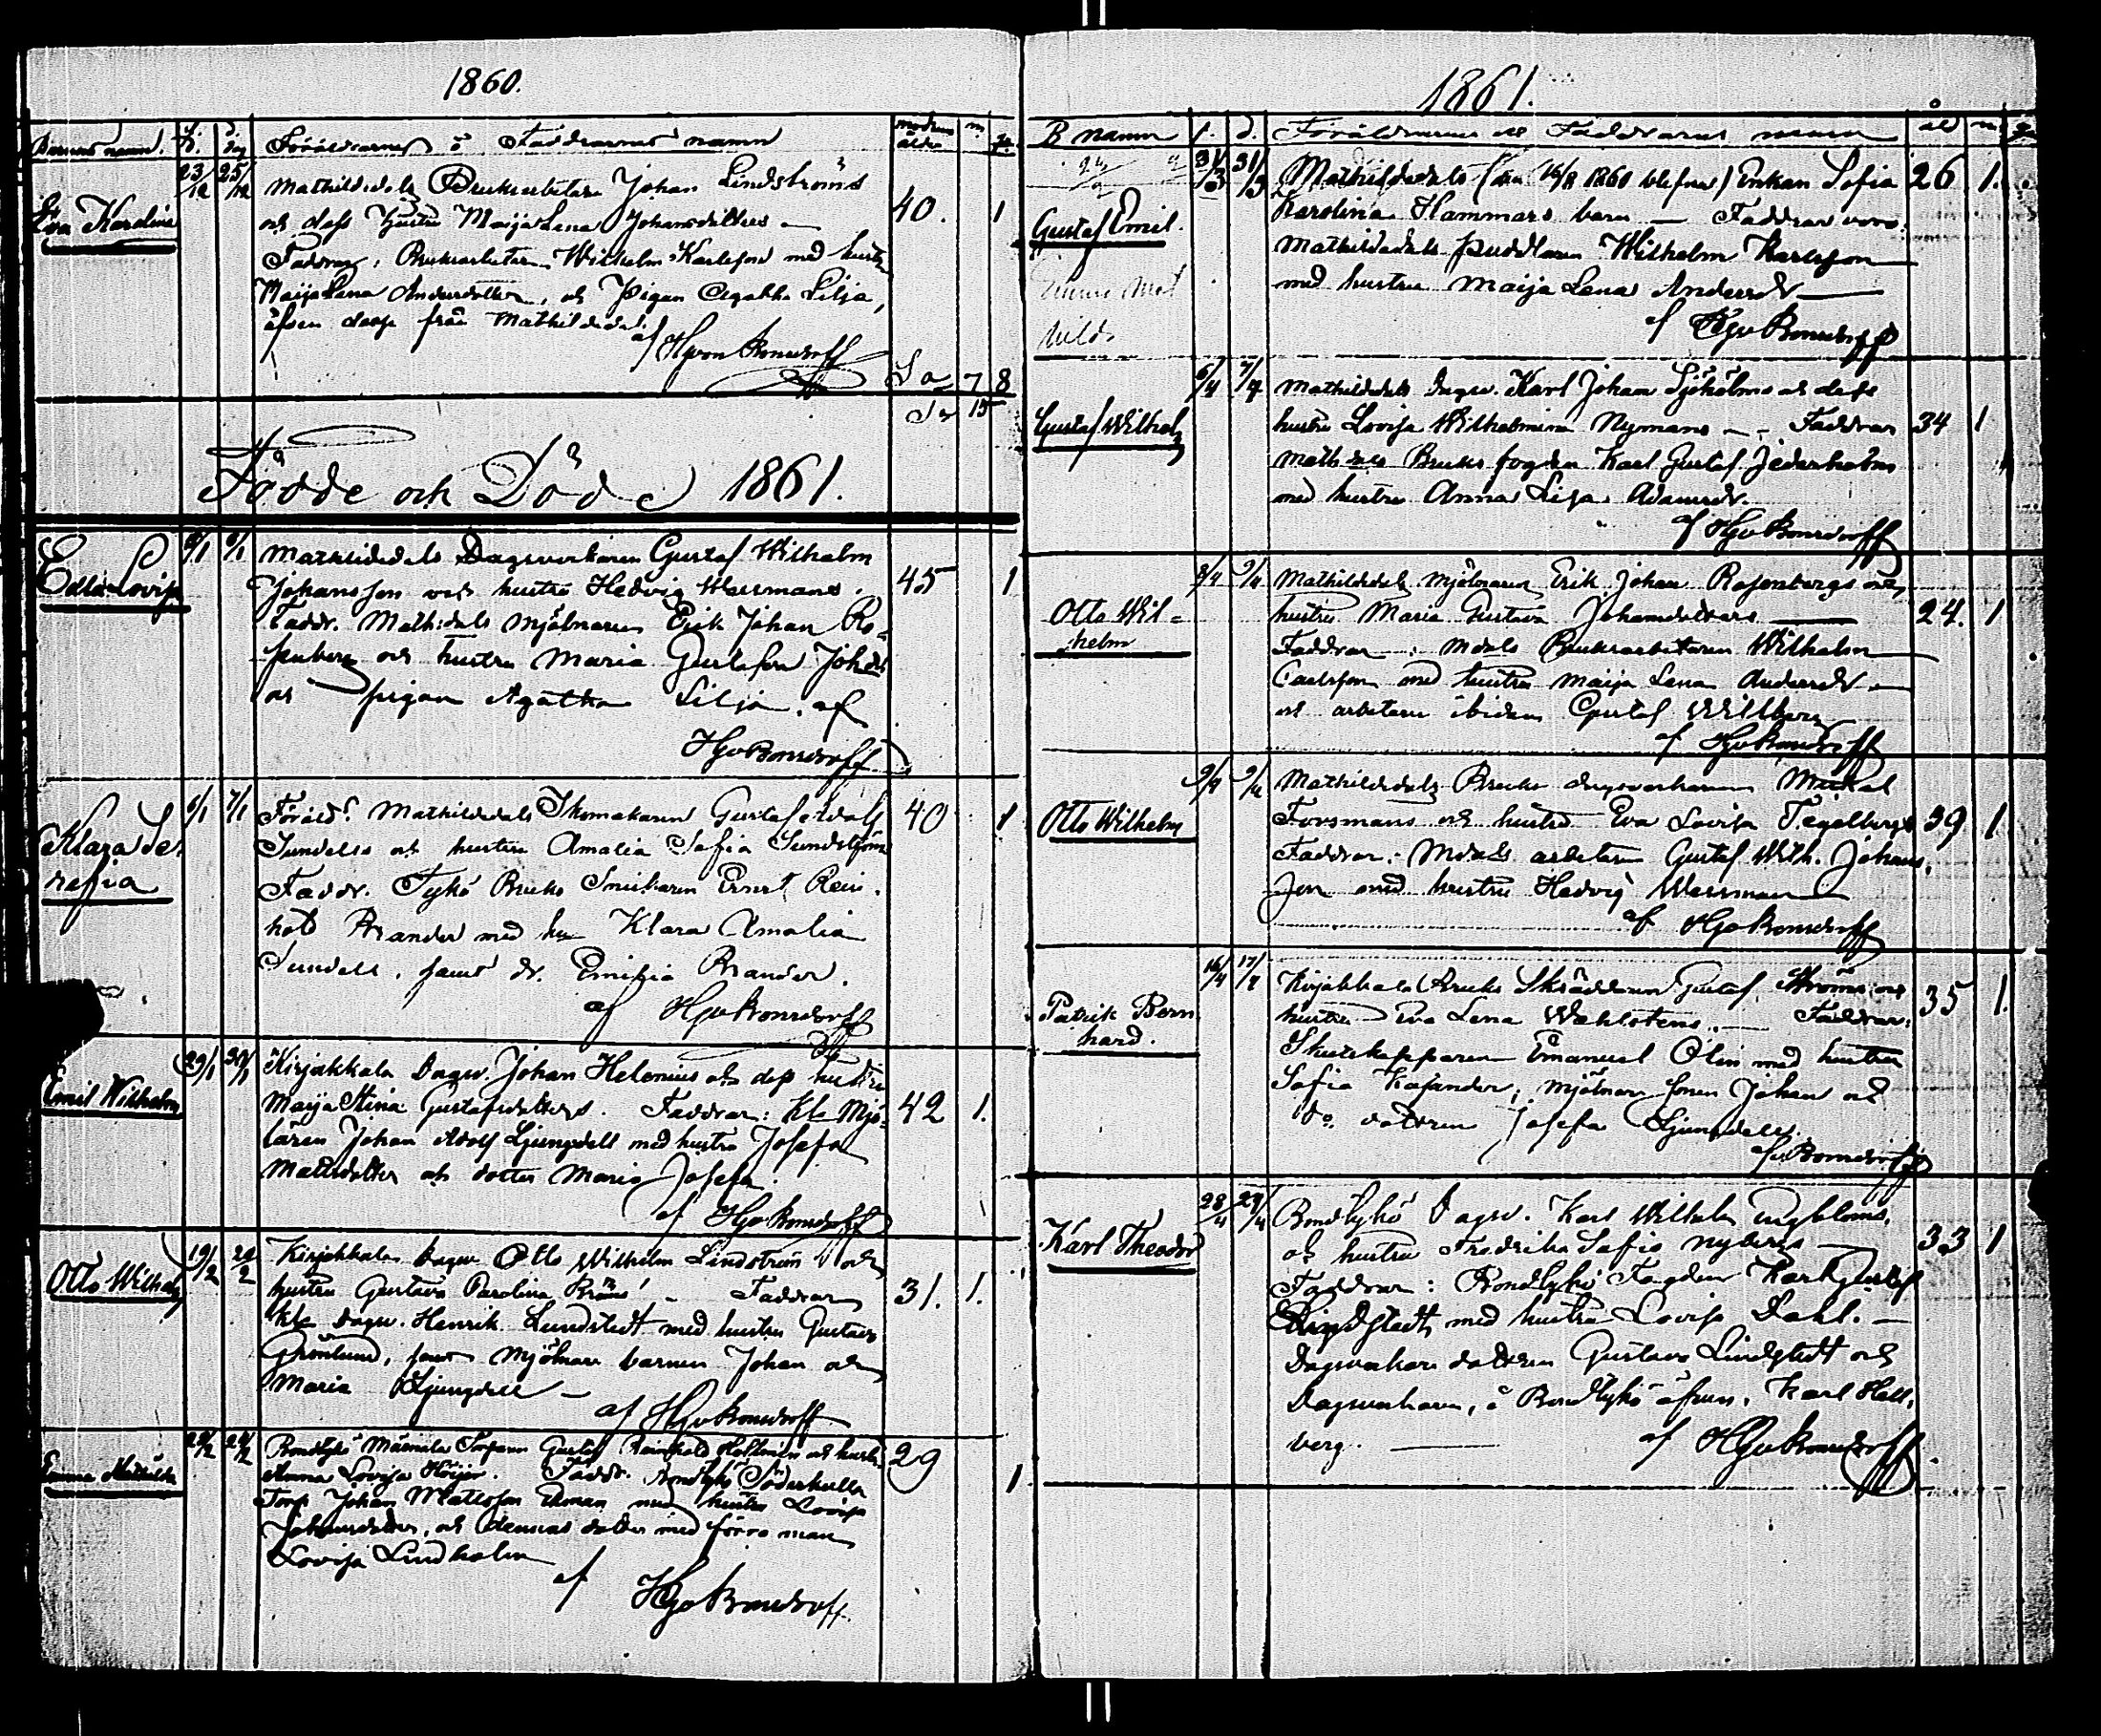 1860.
Barnets namn. f. d. dag Föräldrarnes o Faddrarnes namn modrens ålder m. q.
23/12 25/12
Eva Karolina
Mathildedals Bruksarbetare Johan Lindströms
och dess hustru Maija Lena Johansdotters
40. 1
Faddrar, Bruksarbetaren Wilhelm Karlsson med hustru
Maija Lena Andersdotter, och Pigan Agatha Lilja,
äfven desse från Mathildedal.
af HGvon Bonsdorff
Sa 7 8
Sa 15
Födde och Döde 1861.
Edla Lovisa 6/1
Mathildedals Dagsverkaren Gustaf Wilhelm
Johansson och hustru Hedvig Wessmans.
45 1
Faddr. Math:dals Mjölnaren Erik Johan Ro-
senberg och hustru Maria Gustafva Johsd:
och pigan Agatha Lilja. af
HGvBonsdorff
6/1 7/1
Klara Se-
rafia
Föräld: Mathildedals Skomakaren Gustaf Adolf
Sundells och hustru Amalia Sofia Sundström
40 1
Faddr. Tykö Bruks Smikaren Ernst Rein-
hold Brander med hu Klara Amalia
Sundell, samt dr. Emilia Brander.
af HGvBonsdorff
29/1 30/1
Emil Wilhelm
Kirjakkala Dagsv. Johan Helenius och dess hustru
Maija Stina Gustafsdotters. Faddrar: Kla Mjö-
42 1.
lären Johan Adolf Ljungdell med hustru Josefa
Mattsdotter och dotter Maria Josefa.
af HGvBonsdorff
19/2 24/2
Otto Wilhelm
Kirjakkala Dagsv Otto Wilhelm Lindström och
hustru Gustava Karolina Faddrar
31. 1.
Kla Dagsv. Henrik Lundstedt med hustru Gustava
Grönlund, samt Mjölnare barnen Johan och
Maria Ljungdell
af HGvBonsdorff
24/2 24/2
Emma Mathilda
Bondtykö Torparen Gustaf Reinhold och hustru
29
Anna Lovisa Höijer. Faddr. Bondtykö Söderkulla
1
Torp. Johan Mattsson Ekman med hustru Lovisa
Johansdotter, och dennas dotter med förra man
Lovisa Lindholm
af HGvBonsdorff
1861.
B namn f. d. Föräldrarnes och Faddrarnes namn åld m. q.
31/3 31/3
Gustaf Emil.
Mathildedals (den 16/8 1860 blefne) Enkan Sofia
26 1.
Karolina Hammars barn — Faddrar voro.
Mathildedals puddlaren Wilhelm Karlsson
med hustru Maija Lena Andersdr
af HGvBonsdorff
6/4 7/4
Gustaf Wilhelm
Mathildedals Dagsv. Karl Johan Sjöholms och dess
hustru Lovisa Wilhelmina Nymans — Faddrar
34 1
Math:dals Bruks fogden Karl Gustaf Jederholm
med hustru Anna Lisa Adamsdr.
af HGvBonsdorff
8/4 9/4
Otto Wil-
helm
Mathildedals Mjölnaren Erik Johan Rosenbergs och
hustru Maria Gustava Johansdotters
24. 1
Faddrar: Mdals Bruksarbetaren Wilhelm
Carlsson med hustru Maija Lena Andersdr
och arbetaren ibidem Gustaf Willberg
af HGvBonsdorff
9/4 9/4
Otto Wilhelm
Mathildedals Bruks dagsverkaren Mickel
Forsmans och hustru Eva Lovisa Tegelbergs
39 1
Faddrar: Mdals arbetare Gustaf Wilh. Johans-
son med hustru Hedvig Wessman
af HGvBonsdorff
16/4 17/4
Patrick Bern
hard.
Kirjakkala Bruks Skräddaren Gustaf Ströms och
hustru Eva Lena Wahlstens. — Faddrar:
35 1.
Skutskepparen Emanuel Olin med hustru
Sofia Kajander; mjölnare sonen Johan och
do. dottren Josefa Ljungdell.
af Bonsdorff
28/4 29/4
Karl Theodor
Bondtykö Dagsv. Karl Wilhelm Engbloms,
och hustru Fredrika Sofia Nybergs
33 1
Faddrar: Bondtykö Fogden Karl Gustaf
Lindstedt, med hustru Lovisa Dahl. —
Dagsverkare dottren Gustava Lindstedt och
Dagsverkaren, å Bondtykö äfven, Karl Hell-
berg. — af HGvBonsdorff